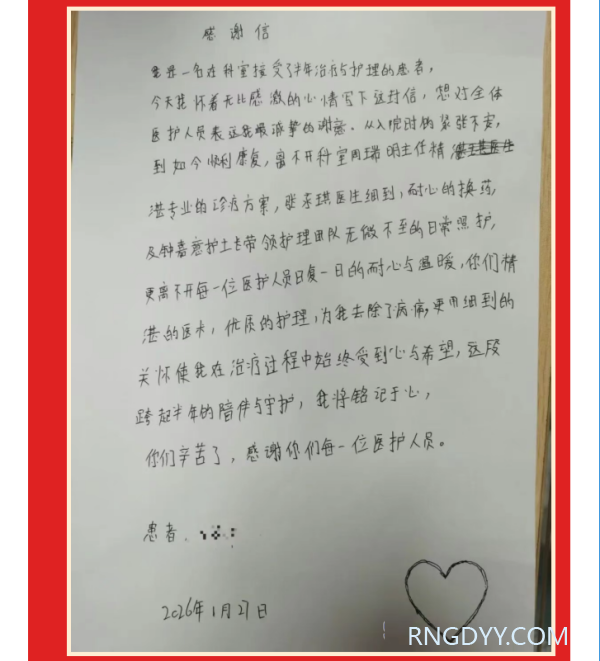 感谢信
我是一名在科室接受了半年治疗与护理的患者,
今天我怀着无比感激的心情写下这封信,想对全体
医护人员表达我最诚挚的谢意。从入院时的紧张不安,
到如今顺利康复,离不开科室周瑞明主任精
湛专业的诊疗方案,张李琪医生细到,耐心的换药,
及钟嘉意护士长带领护理团队无微不至的日常照护,
更离不开每一位医护人员日复一日的耐心与温暖,你们精
湛的医术,优质的护理,为我去除了病痛,更用细到的
关怀使我在治疗过程中始终受到心与希望,这段
跨起半年的陪伴与守护,我将铭记于心,
你们辛苦了,感谢你们每一位医护人员。
患者.
2026年1月27日
RNGDYY.COM